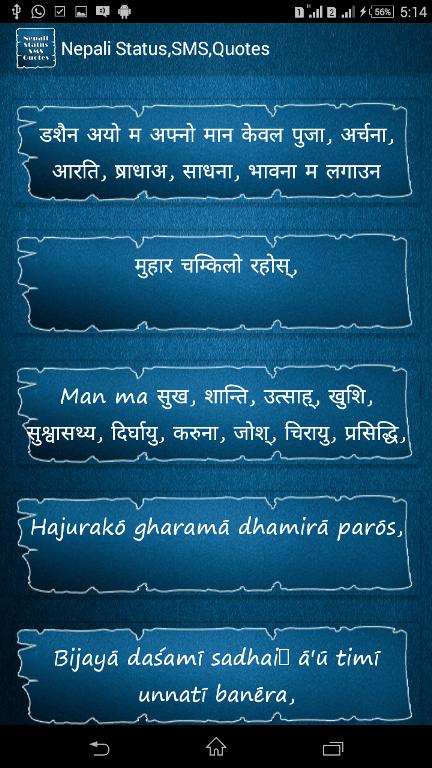 56% 5:14
Nepali
Status
SMS
Quotes
Nepali Status,SMS,Quotes
डशैन अयो म अफ्नो मान केवल पुजा, अर्चना,
आरति, ष्राधाअ, साधना, भावना म लगाउन
मुहार चम्किलो रहोस्,
Man ma सुख, शान्ति, उत्साह्, खुशि,
सुश्वासथ्य, दिर्घायु, करुना, जोश्, चिरायु, प्रसिद्धि,
Hajurakō gharamā dhamirā parōs,
Bijayā daśamī sadhai▯ ā'ū timī
unnatī banēra,